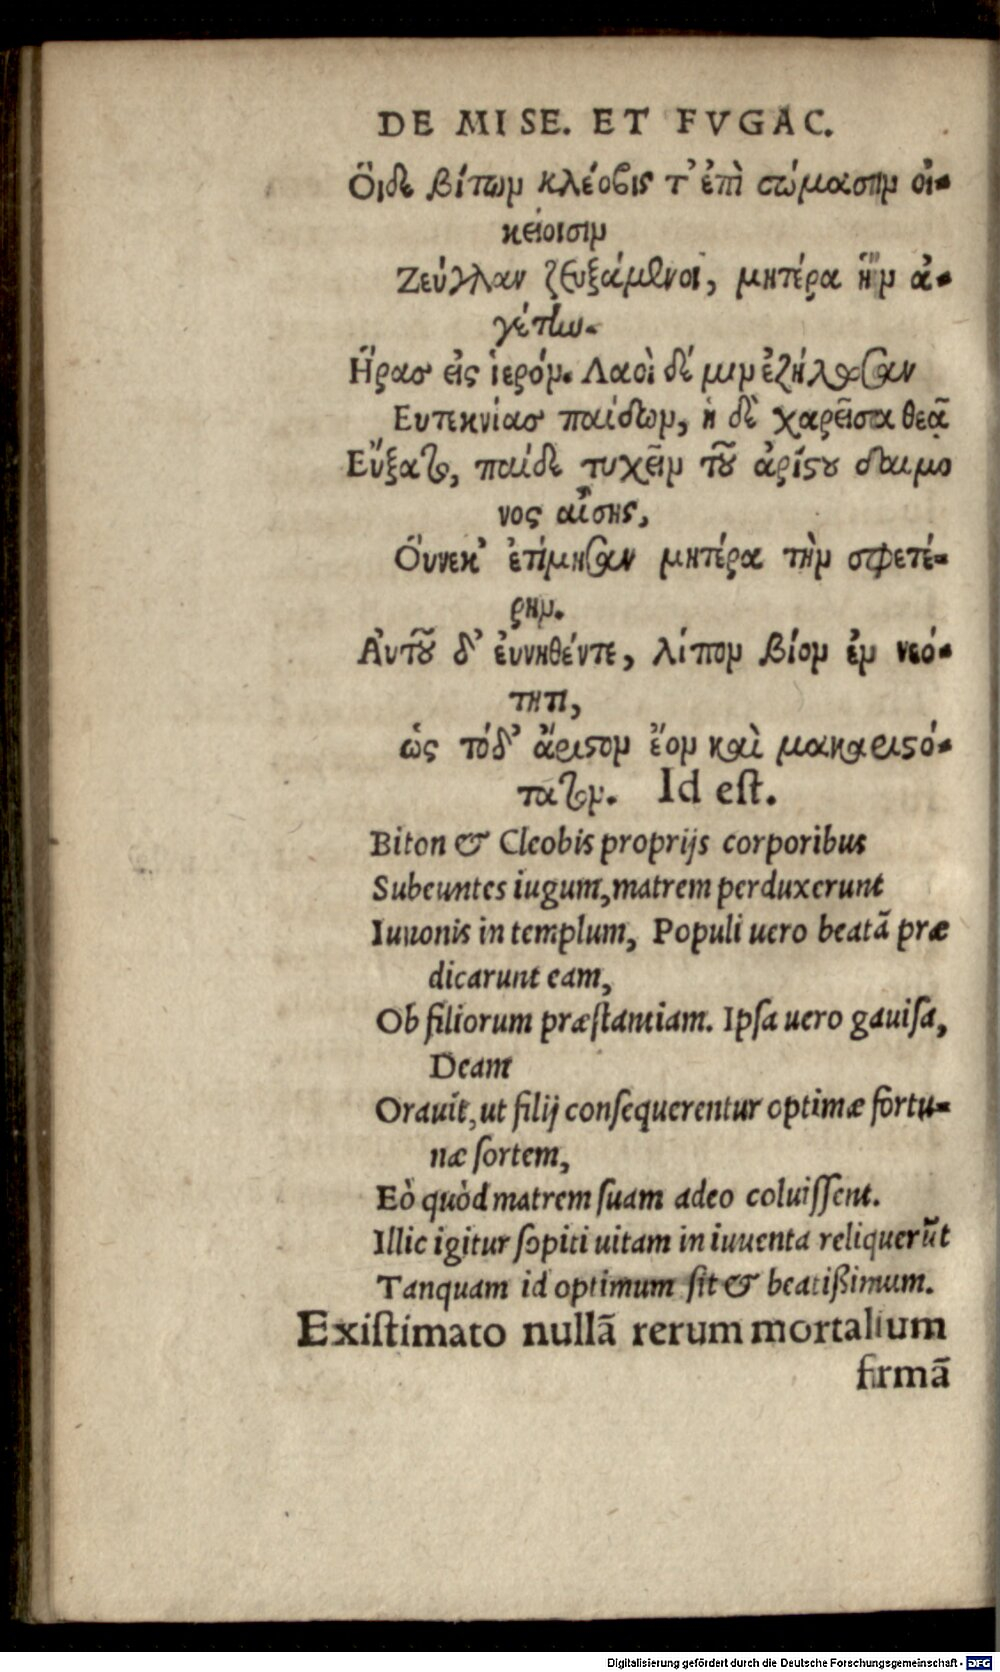 DE MISE. ET FVGAC.
Ὅιδε βίτων κλέοβις τ' ἐπὶ σώμασιν οἰ-
κείοισιν
Ζεύγλαν ζευξάμενοι, μητέρα ἣν ἀ-
γέτην.
Ἥρας εἰς ἱερόν. Λαοὶ δέ μιν ἐζήλωσαν
Ευτεκνίας παίδων, ἡ δὲ χαρεῖσα θεᾷ
Εὔξατο, παῖδε τυχεῖν τοῦ ἀρίστου δαιμο
νος αἴσης,
Ὅυνεκ' ἐτίμησαν μητέρα τὴν σφετέ-
ρην.
Αὐτοῦ δ' ἐυνηθέντε, λίπον βίον ἐν νεό-
τητι,
ὡς τόδ' ἄριστον ἔον καὶ μακαριστό-
τατον. Id eſt.
Biton & Cleobis proprijs corporibus
Subeuntes iugum, matrem perduxerunt
Iunonis in templum, Populi uero beatã præ
dicarunt eam,
Ob filiorum præſtantiam. Ipſa uero gauiſa,
Deam
Orauit, ut filij conſequerentur optimæ fortu-
næ ſortem,
Eò quòd matrem ſuam adeo coluiſſent.
Illic igitur ſopiti uitam in iuuenta reliquerũt
Tanquam id optimum ſit & beatißimum.
Exiſtimato nullã rerum mortalium
firmã
Digitalisierung gefördert durch die Deutsche Forschungsgemeinschaft - DFG